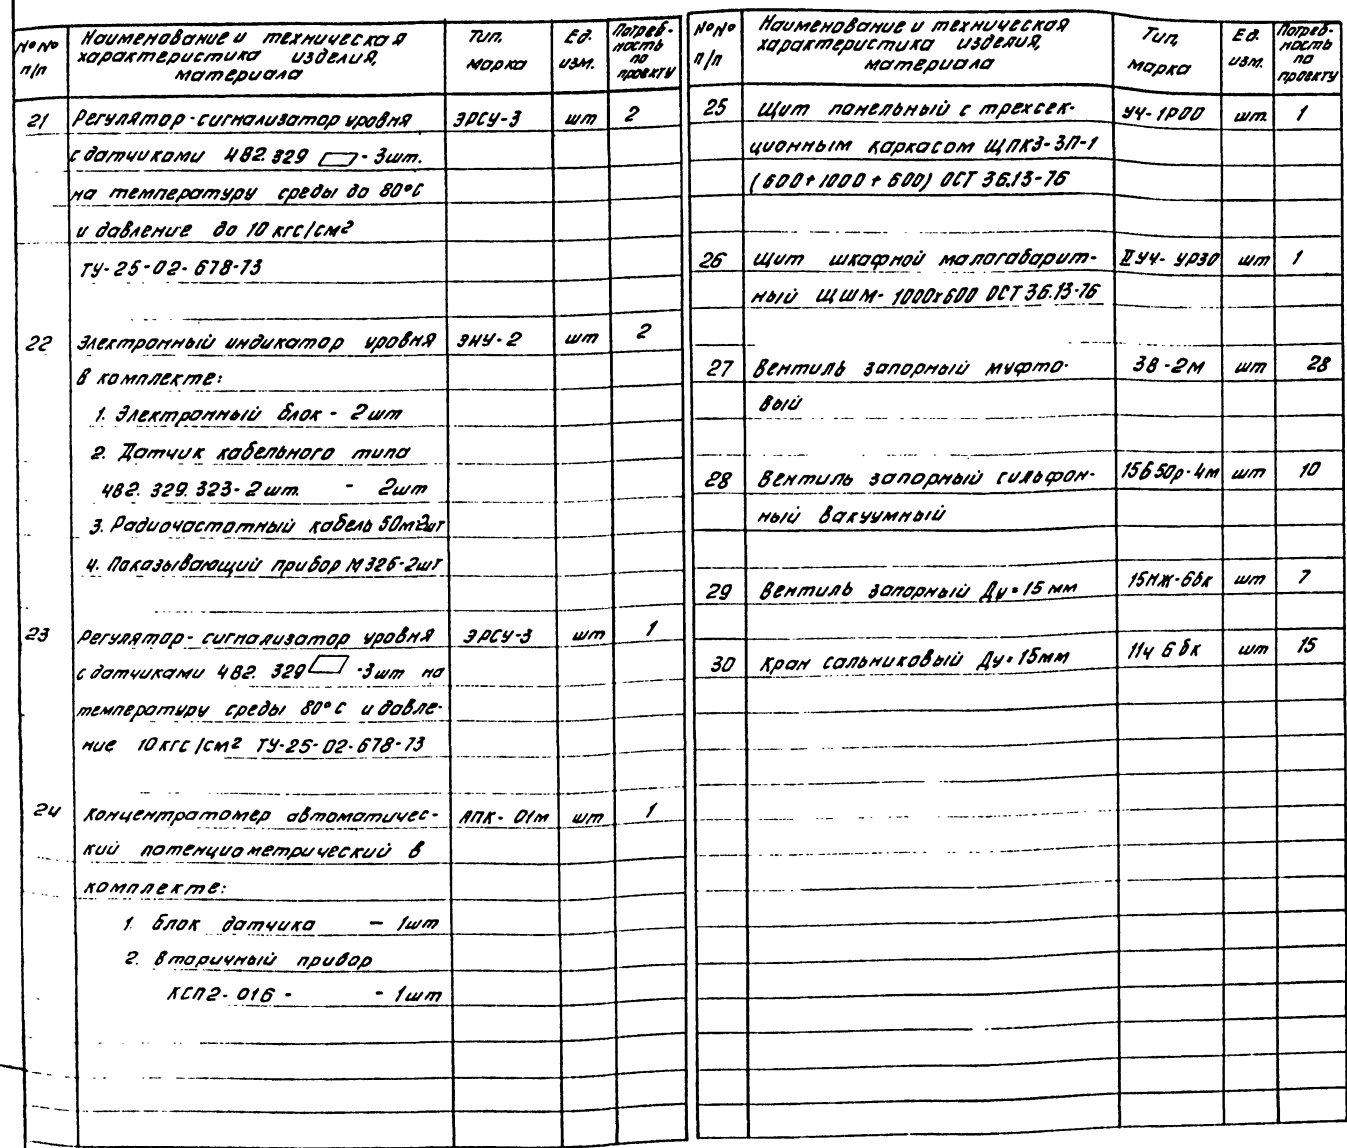 №№ п/п | Наименование и техническая характеристика изделия, материала | Тип, марка | Ед. изм. | Потребность по проекту
21 Регулятор-сигнализатор уровня ЭРСУ-3 шт 2
с датчиками 482.329 ▱ - 3шт.
на температуру среды до 80°С
и давление до 10 кгс/см2
ТУ-25-02-678-73
22 Электронный индикатор уровня ЭИУ-2 шт 2
в комплекте:
1. Электронный блок - 2шт
2. Датчик кабельного типа
482.329.323-2шт. - 2шт
3. Радиочастотный кабель 50м 2шт
4. Показывающий прибор М326-2шт
23 Регулятор-сигнализатор уровня ЭРСУ-3 шт 1
с датчиками 482.329 ▱ -3шт на
температуру среды 80°С и давле-
ние 10кгс/см2 ТУ-25-02-678-73
24 Концентратомер автоматичес- АПК-01м шт 1
кий потенциометрический в
комплекте:
1. Блок датчика - 1шт
2. Вторичный прибор
КСП2-016 - - 1шт
№№ п/п | Наименование и техническая характеристика изделия, материала | Тип, марка | Ед. изм. | Потреб-ность по проекту
25 Щит панельный с трехсек- УЧ-1Р00 шт. 1
ционным каркасом ЩПК3-ЗП-1
(600+1000+600) ОСТ 36.13-76
26 Щит шкафной малогабарит- IIУЧ-УР30 шт 1
ный ЩШМ-1000х600 ОСТ 36.13-76
27 Вентиль запорный муфто- 3В-2М шт 28
вый
28 Вентиль запорный сильфон- 15Б50р-4м шт 10
ный вакуумный
29 Вентиль запорный Ду=15 мм 15нж-6бк шт 7
30 Кран сальниковый Ду=15мм 11ч 6бк шт 15